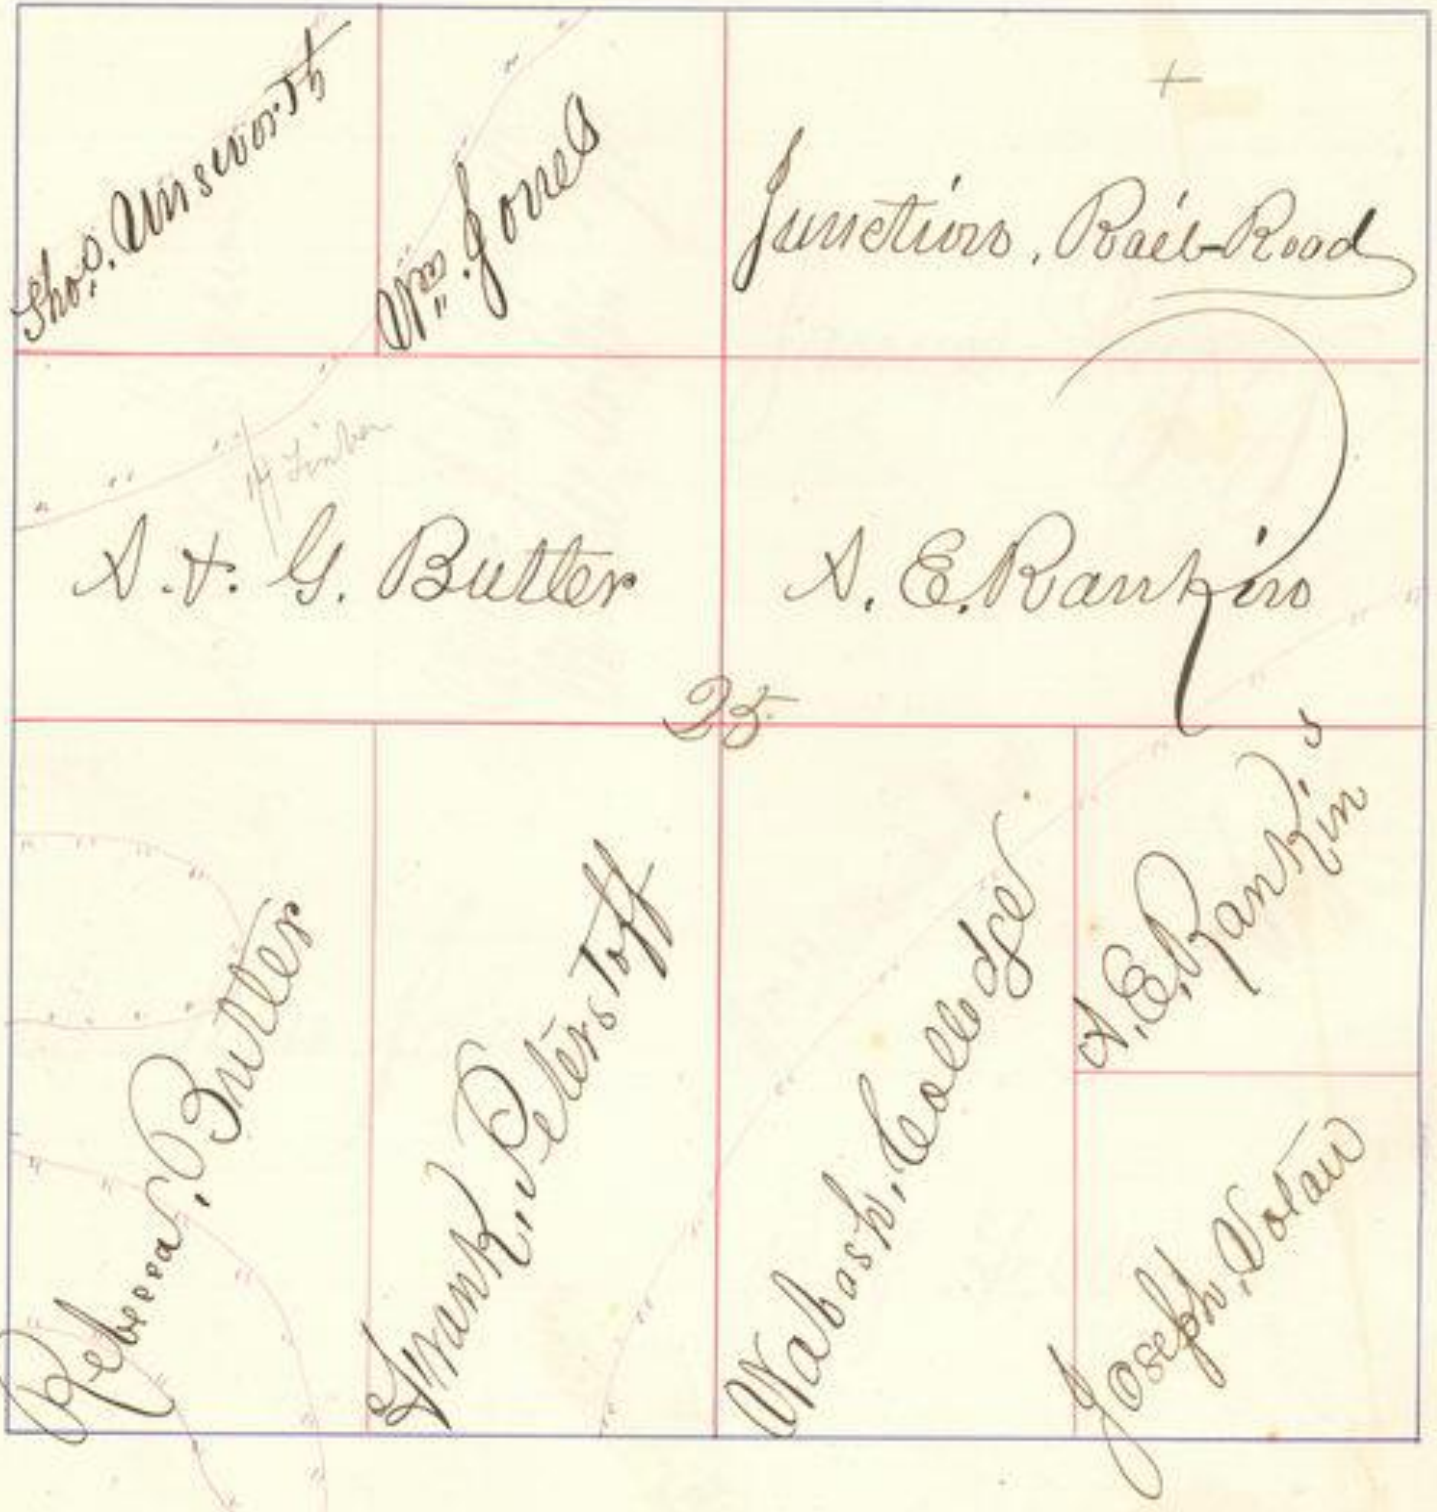 Tho,s. Unsworth
Wm. Jones
Junction, Rail-Road
S. & G. Butler
S. E. Rankin
25
Rebecca, Butler
Frank, Peterstoff
Wabash, Colledge
S. E. Rankin's
Joseph, Votaw